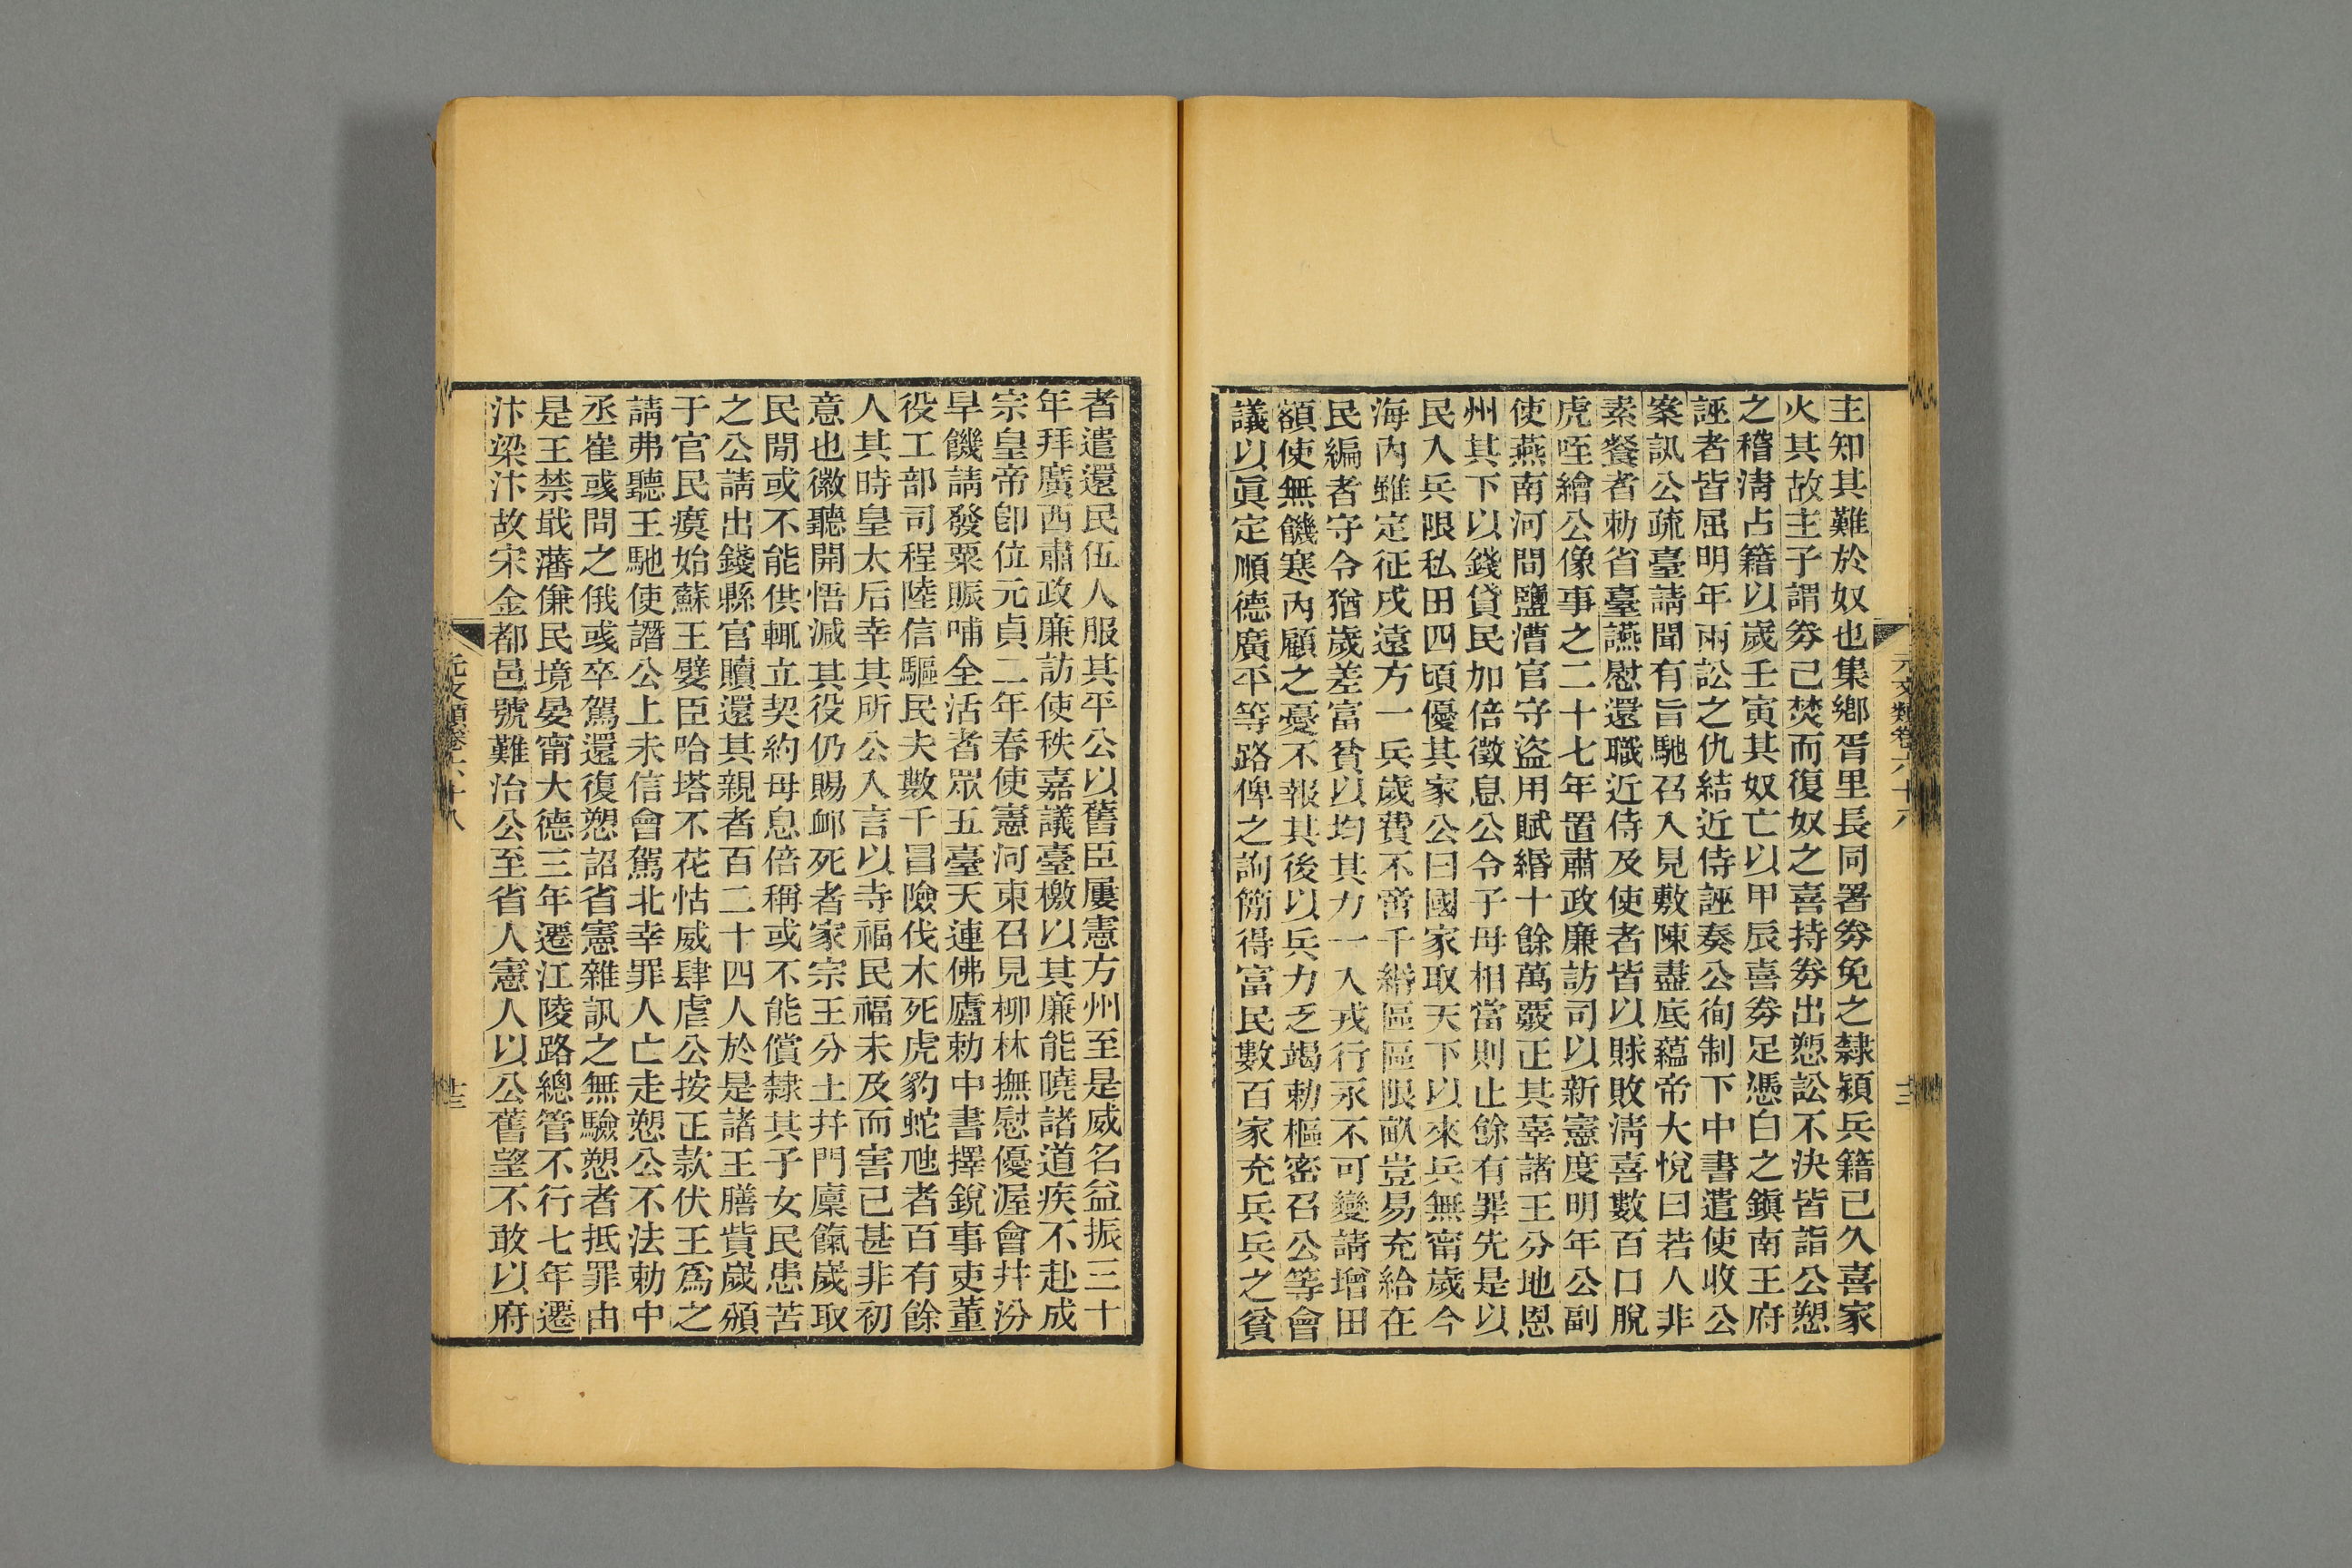 主知其難於奴也集鄉胥里長同署券免之隸潁兵籍已久喜家
火其故主子謂券已焚而復奴之喜持券出愬訟不決皆詣公愬
之稽淸占籍以歲壬寅其奴亡以甲辰喜券足憑白之鎭南王府
誣者皆屈明年兩訟之仇結近侍誣奏公徇制下中書遣使收公
案訊公疏臺請聞有旨馳召入見敷陳盡底蘊帝大悅曰若人非
素餐者勅省臺讌慰還職近侍及使者皆以賕敗淸喜數百口脫
虎咥繪公像事之二十七年置肅政廉訪司以新憲度明年公副
使燕南河間鹽漕官守盜用賦緡十餘萬覈正其辜諸王分地恩
州其下以錢貸民加倍徵息公令子母相當則止餘有罪先是以
民入兵限私田四頃優其家公曰國家取天下以來兵無甯歲今
海內雖定征戍遠方一兵歲費不啻千緡區區限畝豈易充給在
民編者守令猶歲差富貧以均其力一入戎行永不可變請增田
額使無饑寒內顧之憂不報其後以兵力乏竭勅樞密召公等會
議以眞定順德廣平等路俾之詢簡得富民數百家充兵兵之貧
元文類卷六十八
十二
者遣還民伍人服其平公以舊臣屢憲方州至是威名益振三十
年拜廣西肅政廉訪使秩嘉議臺檄以其廉能曉諸道疾不赴成
宗皇帝卽位元貞二年春使憲河東召見柳林撫慰優渥會井汾
旱饑請發粟賑哺全活者眾五臺天連佛廬勅中書擇銳事吏董
役工部司程陸信驅民夫數千冒險伐木死虎豹蛇虺者百有餘
人其時皇太后幸其所公入言以寺福民福未及而害已甚非初
意也徽聽開悟減其役仍賜䘏死者家宗王分土幷門廩餼歲取
民間或不能供輒立契約母息倍稱或不能償隸其子女民患苦
之公請出錢縣官贖還其親者百二十四人於是諸王膳貲歲頒
于官民瘼始蘇王嬖臣哈塔不花怙威肆虐公按正款伏王爲之
請弗聽王馳使譖公上未信會駕北幸罪人亡走愬公不法勅中
丞崔彧問之俄彧卒駕還復愬詔省憲雜訊之無驗愬者抵罪由
是王禁戢藩傔民境晏甯大德三年遷江陵路總管不行七年遷
汴梁汴故宋金都邑號難治公至省人憲人以公舊望不敢以府
元文類卷六十八
十三